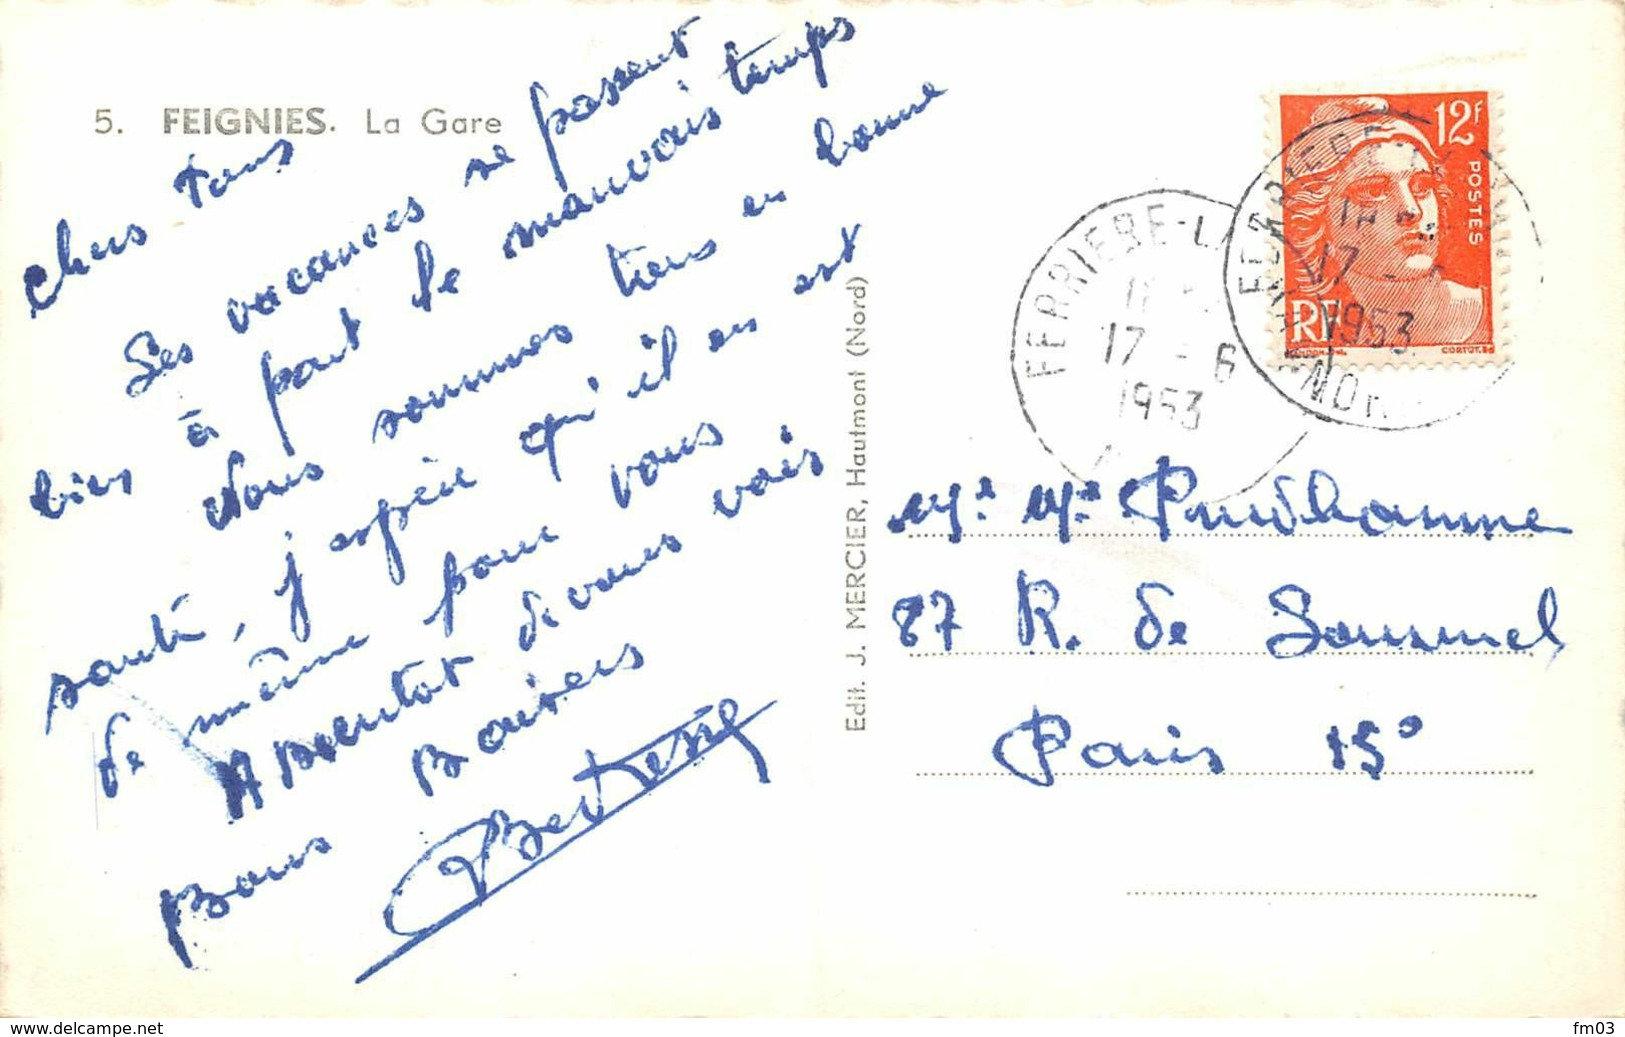 5. FEIGNIES. La Gare
Chers tous
Les vacances se passent
bien à part le mauvais temps
Nous sommes tous en bonne
santé, j'espère qu'il en est
de même pour vous
A bientôt de vous voir
Bons Baisers
Edit. J. MERCIER, Hautmont (Nord)
12f
POSTES
RF
FERRIERE-L
17 - 6
1953
FERRIERE
17 -
1953
NOR
Mr. Me. Prudhomme
87 R. de
Paris 15e
www.delcampe.net
fm03